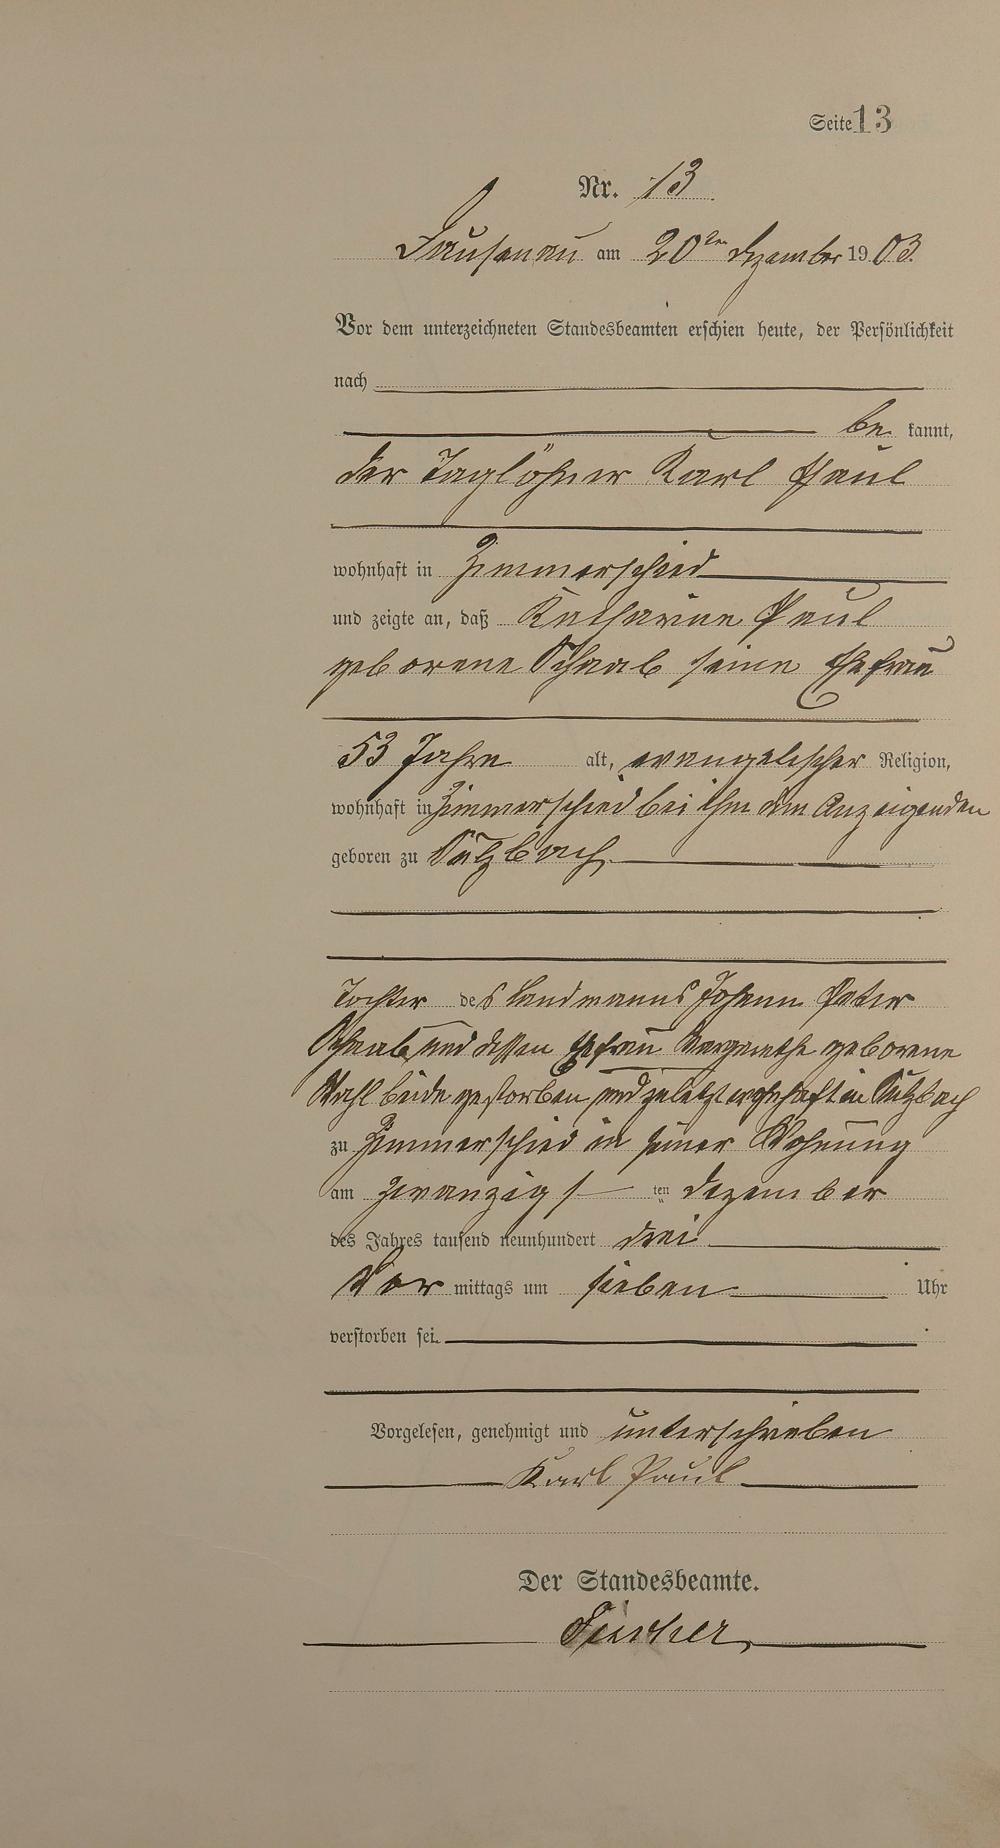 Seite 13
Nr. 13
Dausenau am 20ten Dezember 1903.
Vor dem unterzeichneten Standesbeamten erschien heute, der Persönlichkeit
nach
be kannt,
der Taglöhner Karl Paul
wohnhaft in Zimmerschied
und zeigte an, daß Katharine Paul
geborene Schaab seine Ehefrau
53 Jahre alt, evangelischer Religion,
wohnhaft in Zimmerschied bei ihm dem Anzeigenden
geboren zu Sulzbach
Tochter des Landmanns Johann Peter
Schaab und dessen Ehefrau Margrethe geborene
beide gestorben und zuletzt wohnhaft in Sulzbach
zu Zimmerschied in seiner Wohnung
am zwanzigs ten Dezember
des Jahres tausend neunhundert drei
Vor mittags um sieben Uhr
verstorben sei.
Vorgelesen, genehmigt und unterschrieben
Karl Paul
Der Standesbeamte.